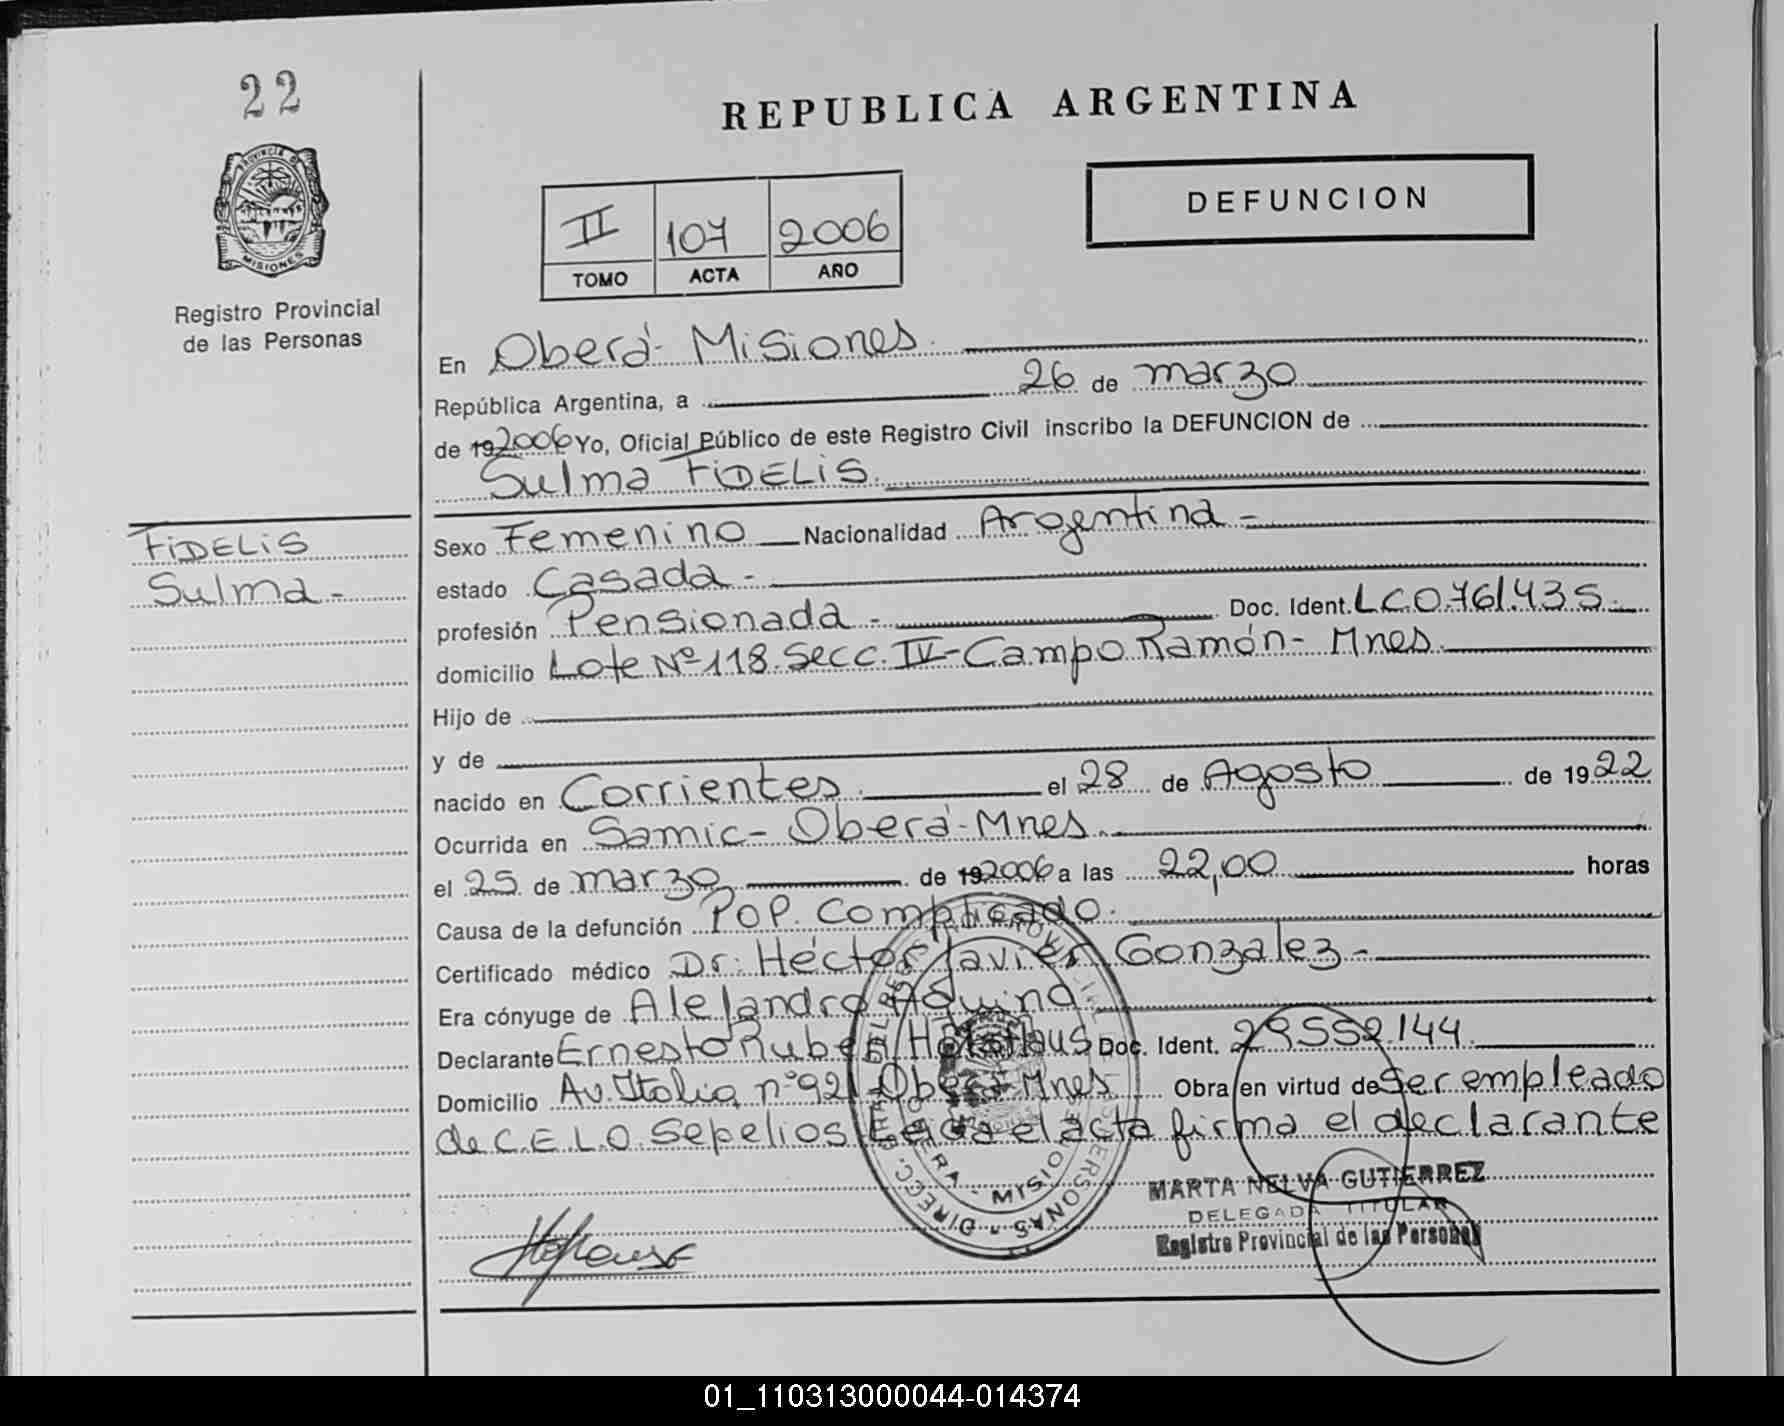 22
PROVINCIA DE
MISIONES
Registro Provincial
de las Personas
FIDELIS
Sulma -
REPUBLICA ARGENTINA
DEFUNCION
II 107 2006
TOMO ACTA AÑO
En Oberá - Misiones.
República Argentina, a 26 de marzo
de 192006 Yo, Oficial Público de este Registro Civil inscribo la DEFUNCION de
Sulma FIDELIS.
Sexo Femenino Nacionalidad Argentina -
estado Casada -
profesión Pensionada - Doc. Ident. LC.0.761.435.
domicilio Lote Nº 118. Secc. IV - Campo Ramón - Mnes.
Hijo de
y de
nacido en Corrientes. el 28 de Agosto de 1922
Ocurrida en Samic - Oberá - Mnes.
el 25 de marzo de 192006 a las 22,00 horas
Causa de la defunción POP. Complicado.
Certificado médico Dr. Héctor Javier Gonzalez -
Era cónyuge de Alejandro Aquino
Declarante Ernesto Ruben Doc. Ident. 29552.144
Domicilio Av. Italia nº 921 Oberá Mnes Obra en virtud de Ser empleado
de C.E.L.O. Sepelios Leida el acta firma el declarante
MARTA NELVA GUTIERREZ
DELEGADA TITULAR
Registro Provincial de las Personas
01_110313000044-014374